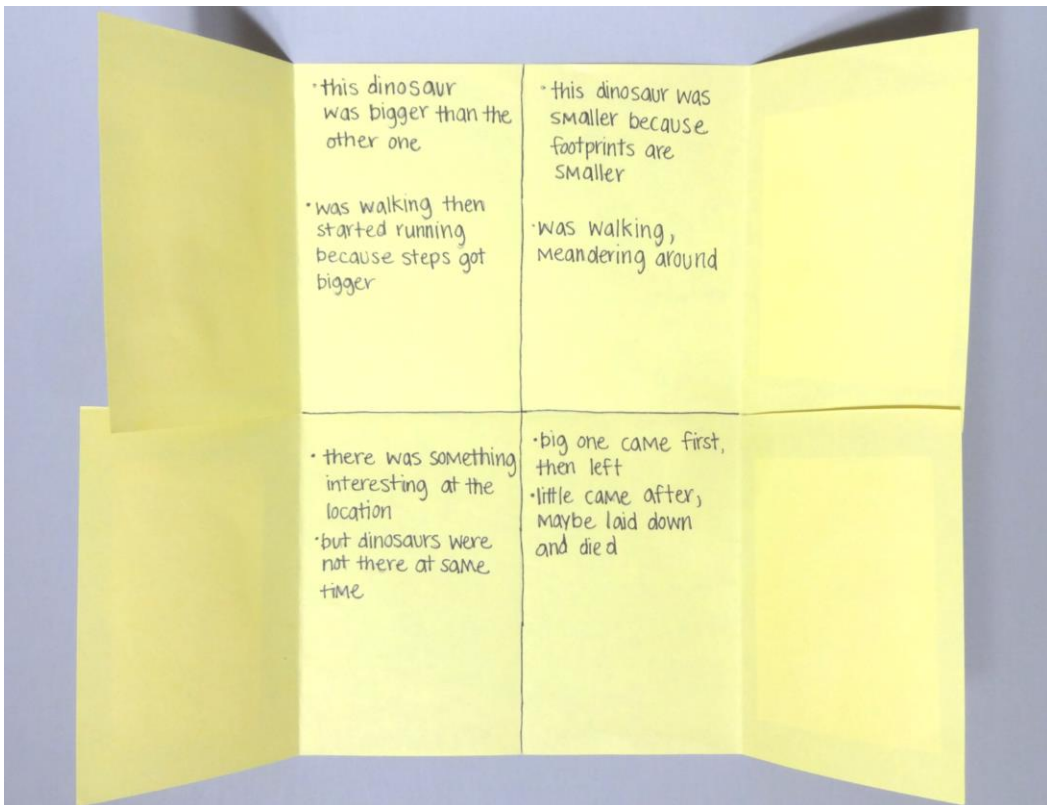 ·this dinosaur
was bigger than the
other one
·was walking then
started running
because steps got
bigger
·this dinosaur was
smaller because
footprints are
smaller
·was walking,
meandering around
·there was something
interesting at the
location
·but dinosaurs were
not there at same
time
·big one came first,
then left
·little came after,
maybe laid down
and died